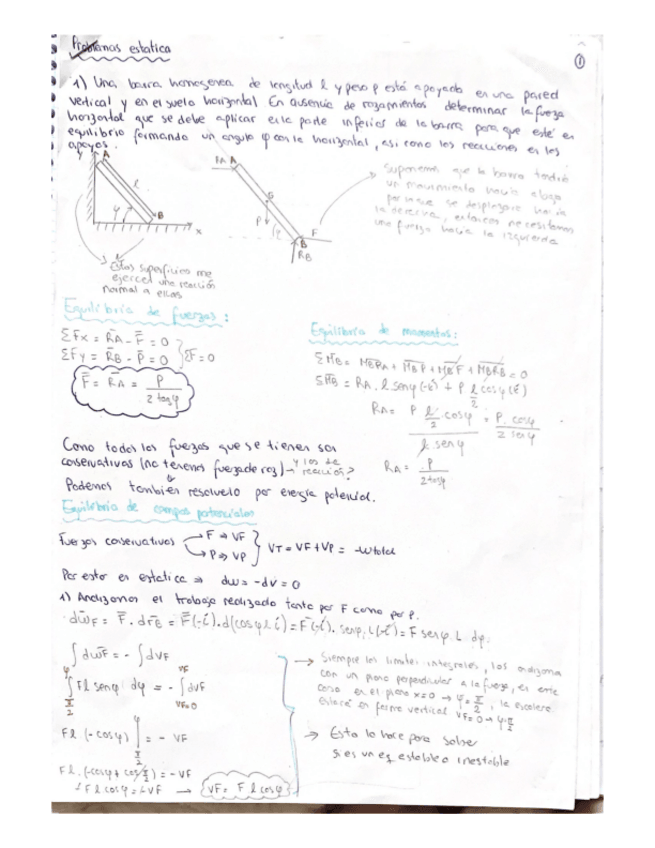 Problemas estatica
①
1) Una barra homogenea de longitud l y peso p está apoyada en una pared
vertical y en el suelo horizontal En ausencia de rozamientos determinar la fuerza
horizontal que se debe aplicar en la parte inferior de la barra para que esté en
equilibrio formando un angulo φ con la horizontal, asi como las reacciones en los
apoyos.
y A
l
φ B
x
RA A
G
P
φ F
B
RB
Suponemos que la barra tendrá
un movimiento hacia abajo
por lo que se desplazará hacia
la derecha, entonces necesitamos
una fuerza hacia la izquierda
Estas superficies me
ejercen una reacción
normal a ellas
Equilibrio de fuerzas:
ΣFx = RA - F = 0
ΣFy = RB - P = 0 } ΣF = 0
F = RA = P / 2 tag φ
Equilibrio de momentos:
ΣMB = MBRA + MBP + MBF + MBRB = 0
ΣMB = RA · l senφ (-k) + P l/2 cosφ (k)
RA = P l/2 · cosφ / l · senφ = P · cosφ / 2 senφ
RA = P / 2 tagφ
Como todas las fuerzas que se tienen son
conservativas (no tenemos fuerza de roz) → y las de reacción?
Podemos también resolverlo por energía potencial.
Equilibrio de campos potenciales
Fuerzas conservativas F ⇒ VF
P ⇒ VP } VT = VF + VP = -Wtotal
Por estar en estatica ⇒ dw = -dv = 0
1) Analizamos el trabajo realizado tanto por F como por P.
dwF = F · drB = F(-i) · d(cosφ l i) = F(-i) · senφ · L(-i) = F senφ · L dφ.
∫dwF = - ∫dVF
∫ Fl senφ dφ = - ∫ dVF
φ π/2 VF VF=0
Fl (-cosφ) | = - VF
φ π/2
Fl · (-cosφ + cos π/2) = -VF
-Fl cosφ = -VF → VF = F l cosφ
→ Siempre los limites integrales, los analizamos
con un plano perpendicular a la fuerza, en este
caso en el plano x=0 → φ = π/2, la escalera
estará en forma vertical VF=0 → φ π/2
→ Esto lo hace para saber
si es un eq estable o inestable